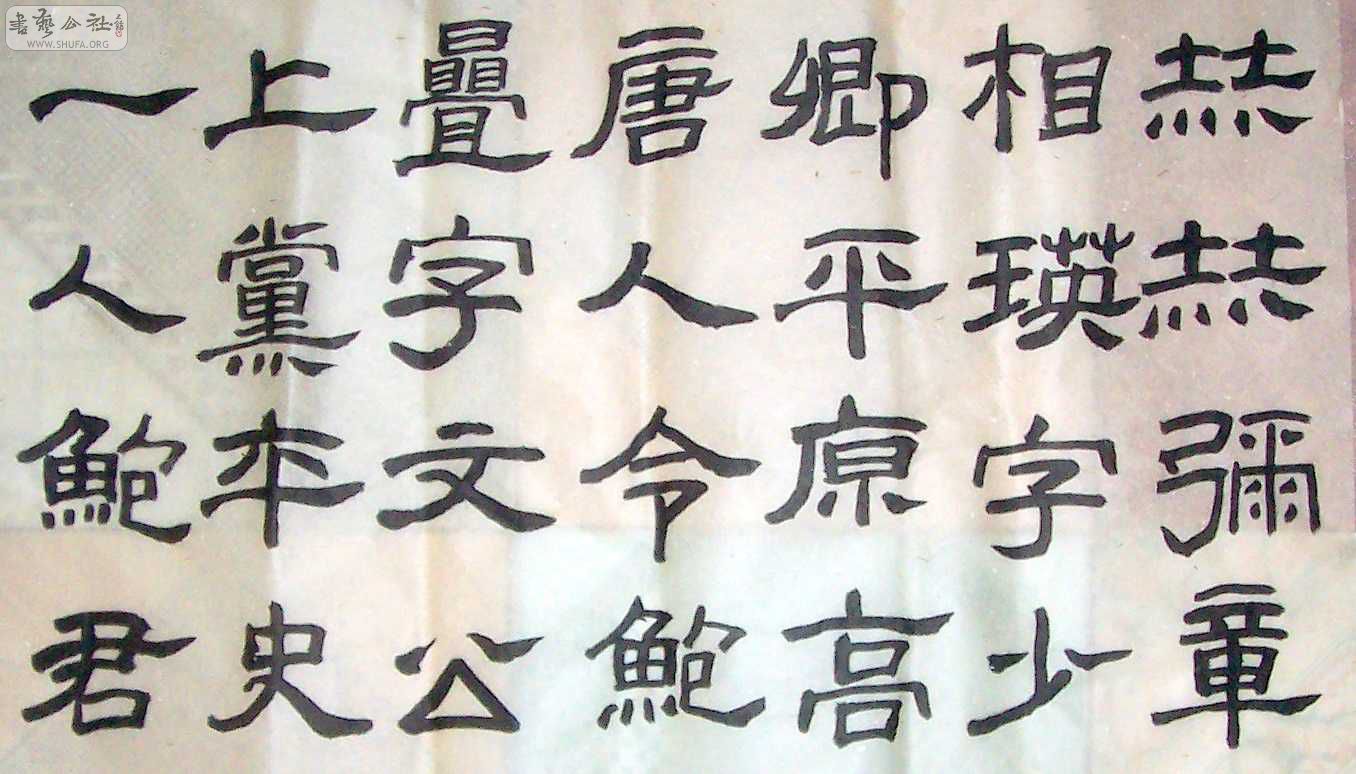 赫赫彌章
相瑛字少
卿平原高
唐人令鮑
曡字文公
上黨卒史
一人鮑君
書藝公社
WWW.SHUFA.ORG